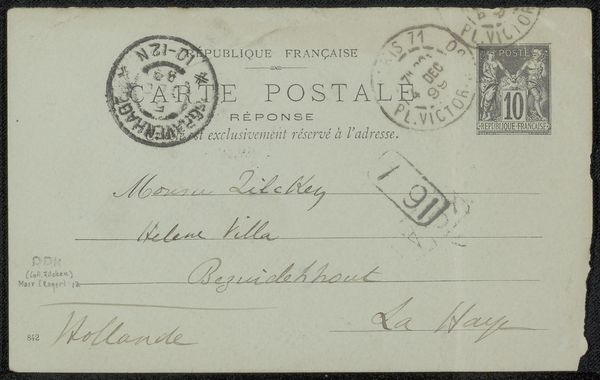 RÉPUBLIQUE FRANÇAISE
CARTE POSTALE
RÉPONSE
est exclusivement réservé à l'adresse.
PARIS 71
DEC
99
PL. VICTOR
PL. VICTOR
POSTE
10
REPUBLIQUE FRANÇAISE
10-12N
'S GRAVENHAGE
99
91
Monsieur Zilcken
Helene Villa
Bezuidenhout
La Haye
Hollande
(coll. Zilcken)
Marx (Roger) 12
842